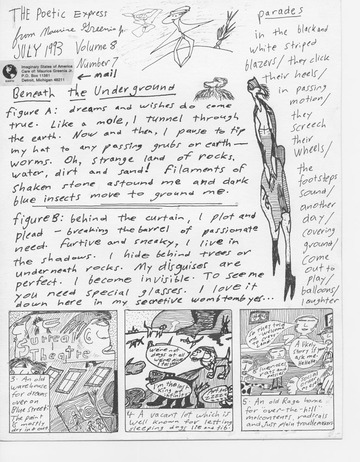 THE Poetic Express
from Maurice Greenia Jr.
JULY 1993 Volume 8
Number 7
← mail
Imaginary States of America
Care of: Maurice Greenia Jr.
P.O. Box 11081
Detroit, Michigan
Beneath the Underground
figure A: dreams and wishes do come
true. Like a mole, I tunnel through
the earth. Now and then, I pause to tip
my hat to any passing grubs or earth-
worms. Oh, strange land of rocks,
water, dirt and sand! Filaments of
shaken stone astound me and dark
blue insects move to ground me.
figure B: behind the curtain, I plot and
plead - breaking the barrel of passionate
need. Furtive and sneaky, I live in
the shadows. I hide behind trees or
underneath rocks. My disguises are
perfect. I become invisible. To see me
you need special glasses. I love it
down here in my secretive wombtomb yes...
parades
in the black and
white striped
blazers/ they click
their heels/
in passing
motion/
they
screech
their
wheels/
the
footsteps
sound/
another
day/
covering
ground/
come
out to
play/
balloons/
laughter
Surreal
Theatre
3- An old
warehouse
for dreams
over on
Blue Street.
The paint
is mostly
dry in and
4 A vacant lot which is
well known for letting
sleeping dogs lie and fib.
5- An old Rage home
for "over-the-hill"
malcontents, radicals
and just plain troublemakers